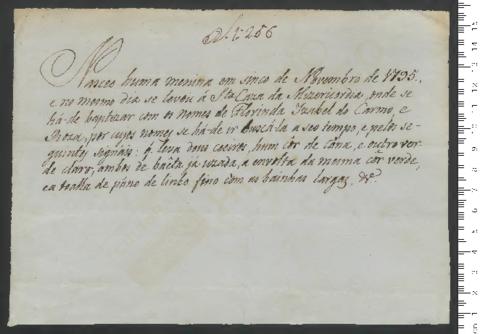 Nº 1256
Nasceo huma menina em sinco de Novembro de 1795.,
e no mesmo dia se levou á Stª Caza da Mizericordia, onde se
há-de baptizar com os nomes de Florinda Izabel do Carmo, e
Roza, por cujos nomes se há-de ir buscá-la a seo tempo, e pelos se-
guintes signais: q̃ leva dous coeiros, hum côr de cana, e outro ver-
de claro, ambos de baêta, já uzada, a envolta da mesma cor verde,
e a toalha de pano de linho fino com as bainhas largas, &ª.